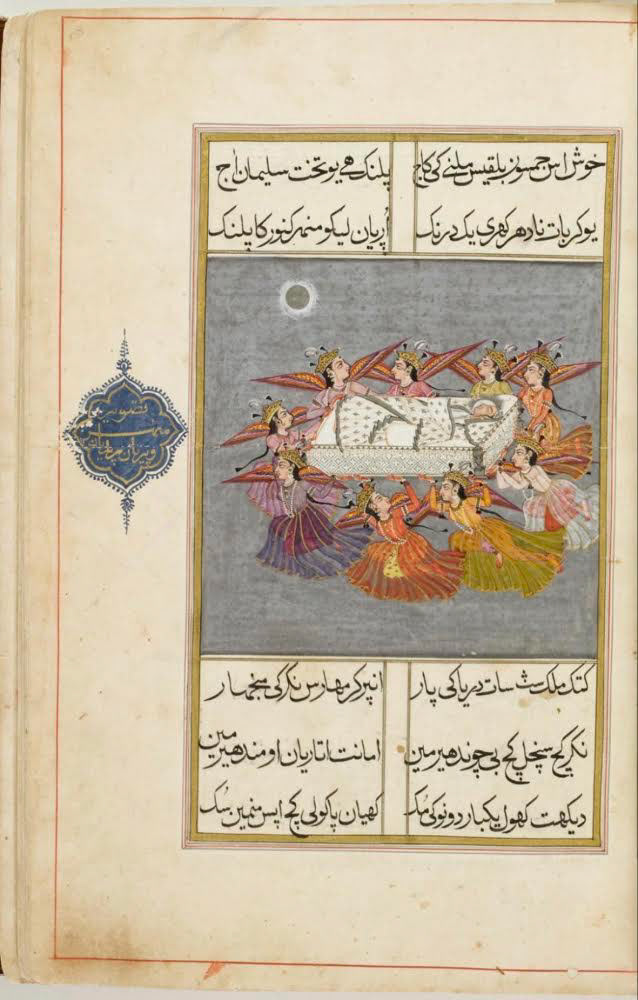 خوش اس جمسوں بلقیس ملنے کی کاج پلنک هے یو تخت سلیمان اج
یو کر بات نادهر کهری یک درنک اُریان لیکو منهر کنور کا پلنک
کتک ملک سٹ سات دریا کی پار انپر کر مهارس نکر کی منجهار
نکر کچ سنچل کچ بی چوندهیر مین امانت اتاریان او مندهیر مین
دیکهت کهول یکبار دونو کی مک کهیان پاکولی کچ اپس منمین سک